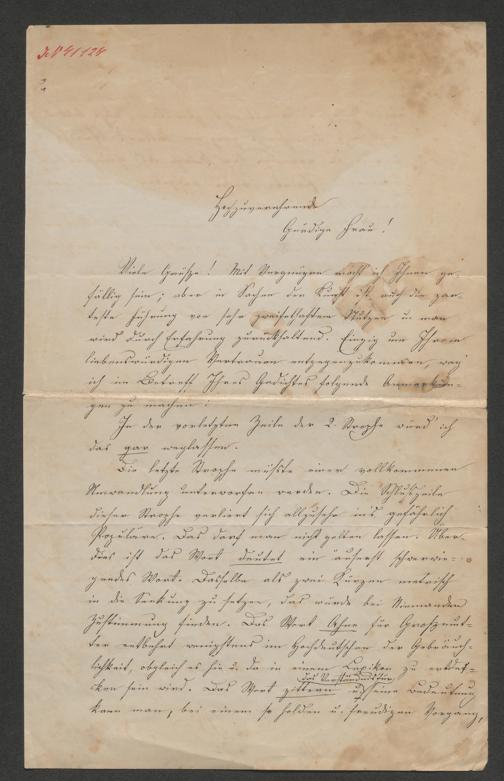 I.N. 41124
2
Hochzuverehrende
Gnädige Frau!
Viele Grüsze! Mit Vergnügen möcht ich Ihnen ge-
fällig sein; aber in Sachen der Kunst ist auch die zar-
teste Führung von sehr zweifelhaftem Nutzen u. man
wird durch Erfahrung zurückhaltend. Einzig um Ihrem
liebenswürdigen Vertrauen entgegenzukommen, wag'
ich im Betreff Ihres Gedichtes folgende Anmerkun-
gen zu machen:
In der vorletzten Zeile der 2. Strophe würd' ich
das gar weglassen.
Die letzte Strophe müsste einer vollkommenen
Umwandlung unterworfen werden. Die Schluszzeile
dieser Strophe verliert sich allzusehr ins gefährlich
Populäre. Das darf man nicht gelten lassen. Über-
dies ist das Wort deutet ein äuszerst schwerwie-
gendes Wort. Dasselbe als zwei Kürzen metrisch
in die Senkung zu setzen, das würde bei Niemanden
Zustimmung finden. Das Wort Ahne für Groszmut-
ter entbehrt wenigstens im Hochdeutschen der Gebräuch-
lichkeit, obgleich es hie u. da in einem Lexikon zu entdek-
ken sein wird. Das Wort zittern u. seine Bedeutung
das Verständnis
kann man, bei einem so holden u. freudigen Vorgang,